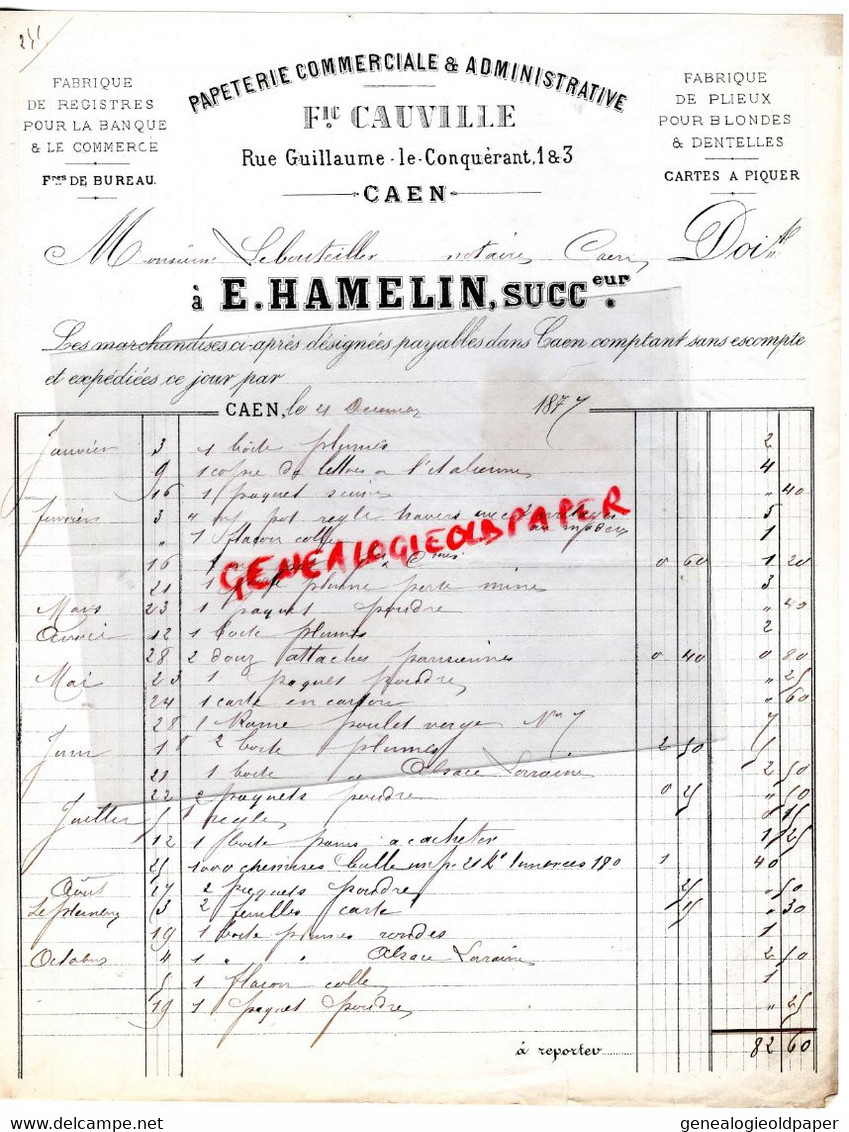 FABRIQUE
DE REGISTRES
POUR LA BANQUE
& LE COMMERCE
Fres DE BUREAU.
PAPETERIE COMMERCIALE & ADMINISTRATIVE
Fic CAUVILLE
Rue Guillaume-le-Conquérant, 1 & 3
CAEN
FABRIQUE
DE PLIEUX
POUR BLONDES
& DENTELLES
CARTES A PIQUER
Monsieur Lebouteiller notaire Caen Doit
à E. HAMELIN, SUCCeur.
Les marchandises ci-après désignées payables dans Caen comptant sans escompte
et expédiées ce jour par
CAEN, le 21 Décembre 1877
Janvier 3 1 boîte plumes 2
9 1 copie de lettres à l'italienne 4
16 1 paquet " 40
Fevrier 3 regle travers avec 5
" 1 flacon colle 1
16 0 60 1 20
21 1 plume porte mine 3
Mars 23 1 paquet poudre " 40
Avril 12 1 boite plumes 2
28 2 douz attaches parisiennes 0 40 0 80
Mai 23 1 paquet poudre " 25
24 1 carte en carton " 60
28 1 Rame poulet vergé No 7 7
Juin 18 2 boite plumes 2 50 5
21 1 boite " Alsace Lorraine 2 50
22 2 paquets poudre 0 25 " 50
Juillet 5 1 regle 0 15
12 1 boite pains a cacheter 1 25
25 1000 chemises bulle 21 k 180 1 40
Août 17 2 paquets poudre 25 " 50
Septembre 13 2 feuilles carte 15 " 30
19 1 boite plumes rondes 1
Octobre 4 1 " " Alsace Lorraine 2 50
5 1 flacon colle 1
19 1 paquet poudre " 25
à reporter 82 60
GENEALOGIEOLDPAPER
genealogieoldpaper
www.delcampe.net